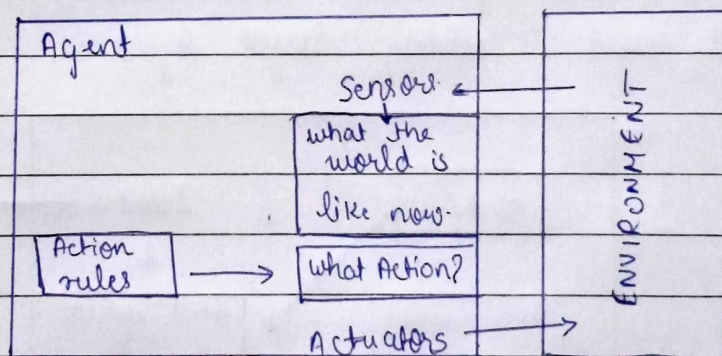 Agent
Sensors
what the
world is
like now.
Action
rules
what Action?
Actuators
ENVIRONMENT